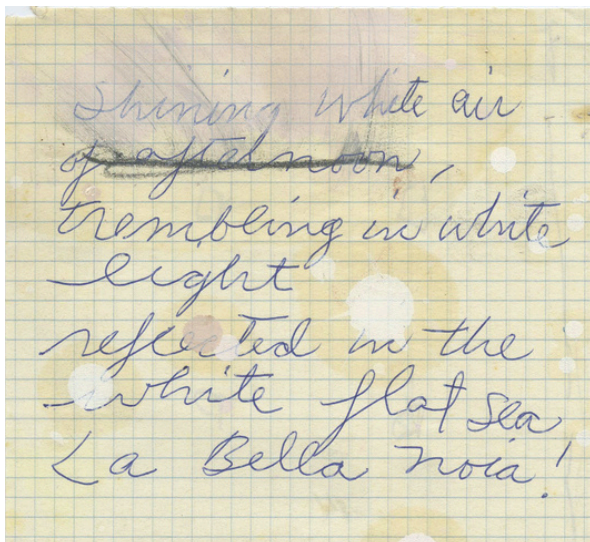 Shining white air
of afternoon,
trembling in white
light
reflected in the
white flat sea
La Bella Noia!